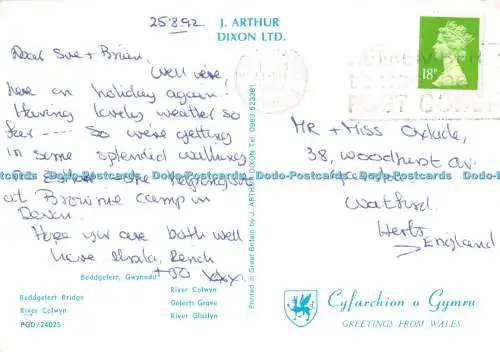 25.8.92
J. ARTHUR
DIXON LTD.
18P
Dear Sue + Brian,
Well we're
here on holiday again!
Having lovely weather so
far ---- So we're getting
in some splendid walking
at Brownie Camp in
Devon.
Hope you are both well
love Sheila,
+ Jo xxx
MR + Miss
38, Woodhurst Av
Watford
Herts
England
Dodo-Postcards Dodo-Postcards Dodo-Postcards Dodo-Postcards
Printed in Great Britain by J. ARTHUR DIXON Tel: 0983 523381
Beddgelert, Gwynedd
Beddgelert Bridge
River Colwyn
PGD/24025
River Colwyn
Gelerts Grave
River Glaslyn
Cyfarchion o Gymru
GREETINGS FROM WALES